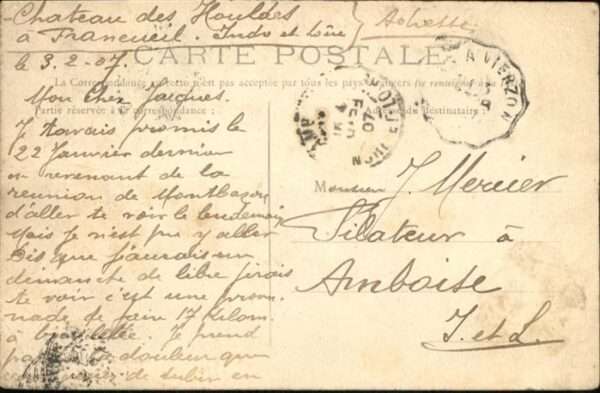 Chateau des Houldes
à Francueil. Indre et Loire
le 3.2.07.
CARTE POSTALE
La Correspondance au recto n'est pas acceptée par tous les pays étrangers (se renseigner à la
Partie réservée à la correspondance
Adresse du destinataire
Mon Cher Jacques.
Je t'avais promis le
22 Janvier dernier
en revenant de la
reunion de Montbazon
d'aller te voir le lendemain
Mais je n'est pu y aller
Dis que j'aurais un
dimanche de libre j'irais
te voir c'est une prom-
nade de faire 17 Kilom.
à bicyclette. Je prend
part à la douleur que
de subir en
Monsieur J. Mercier
Filateur à
Amboise
I. et L.
VIERZON
FEVR
07